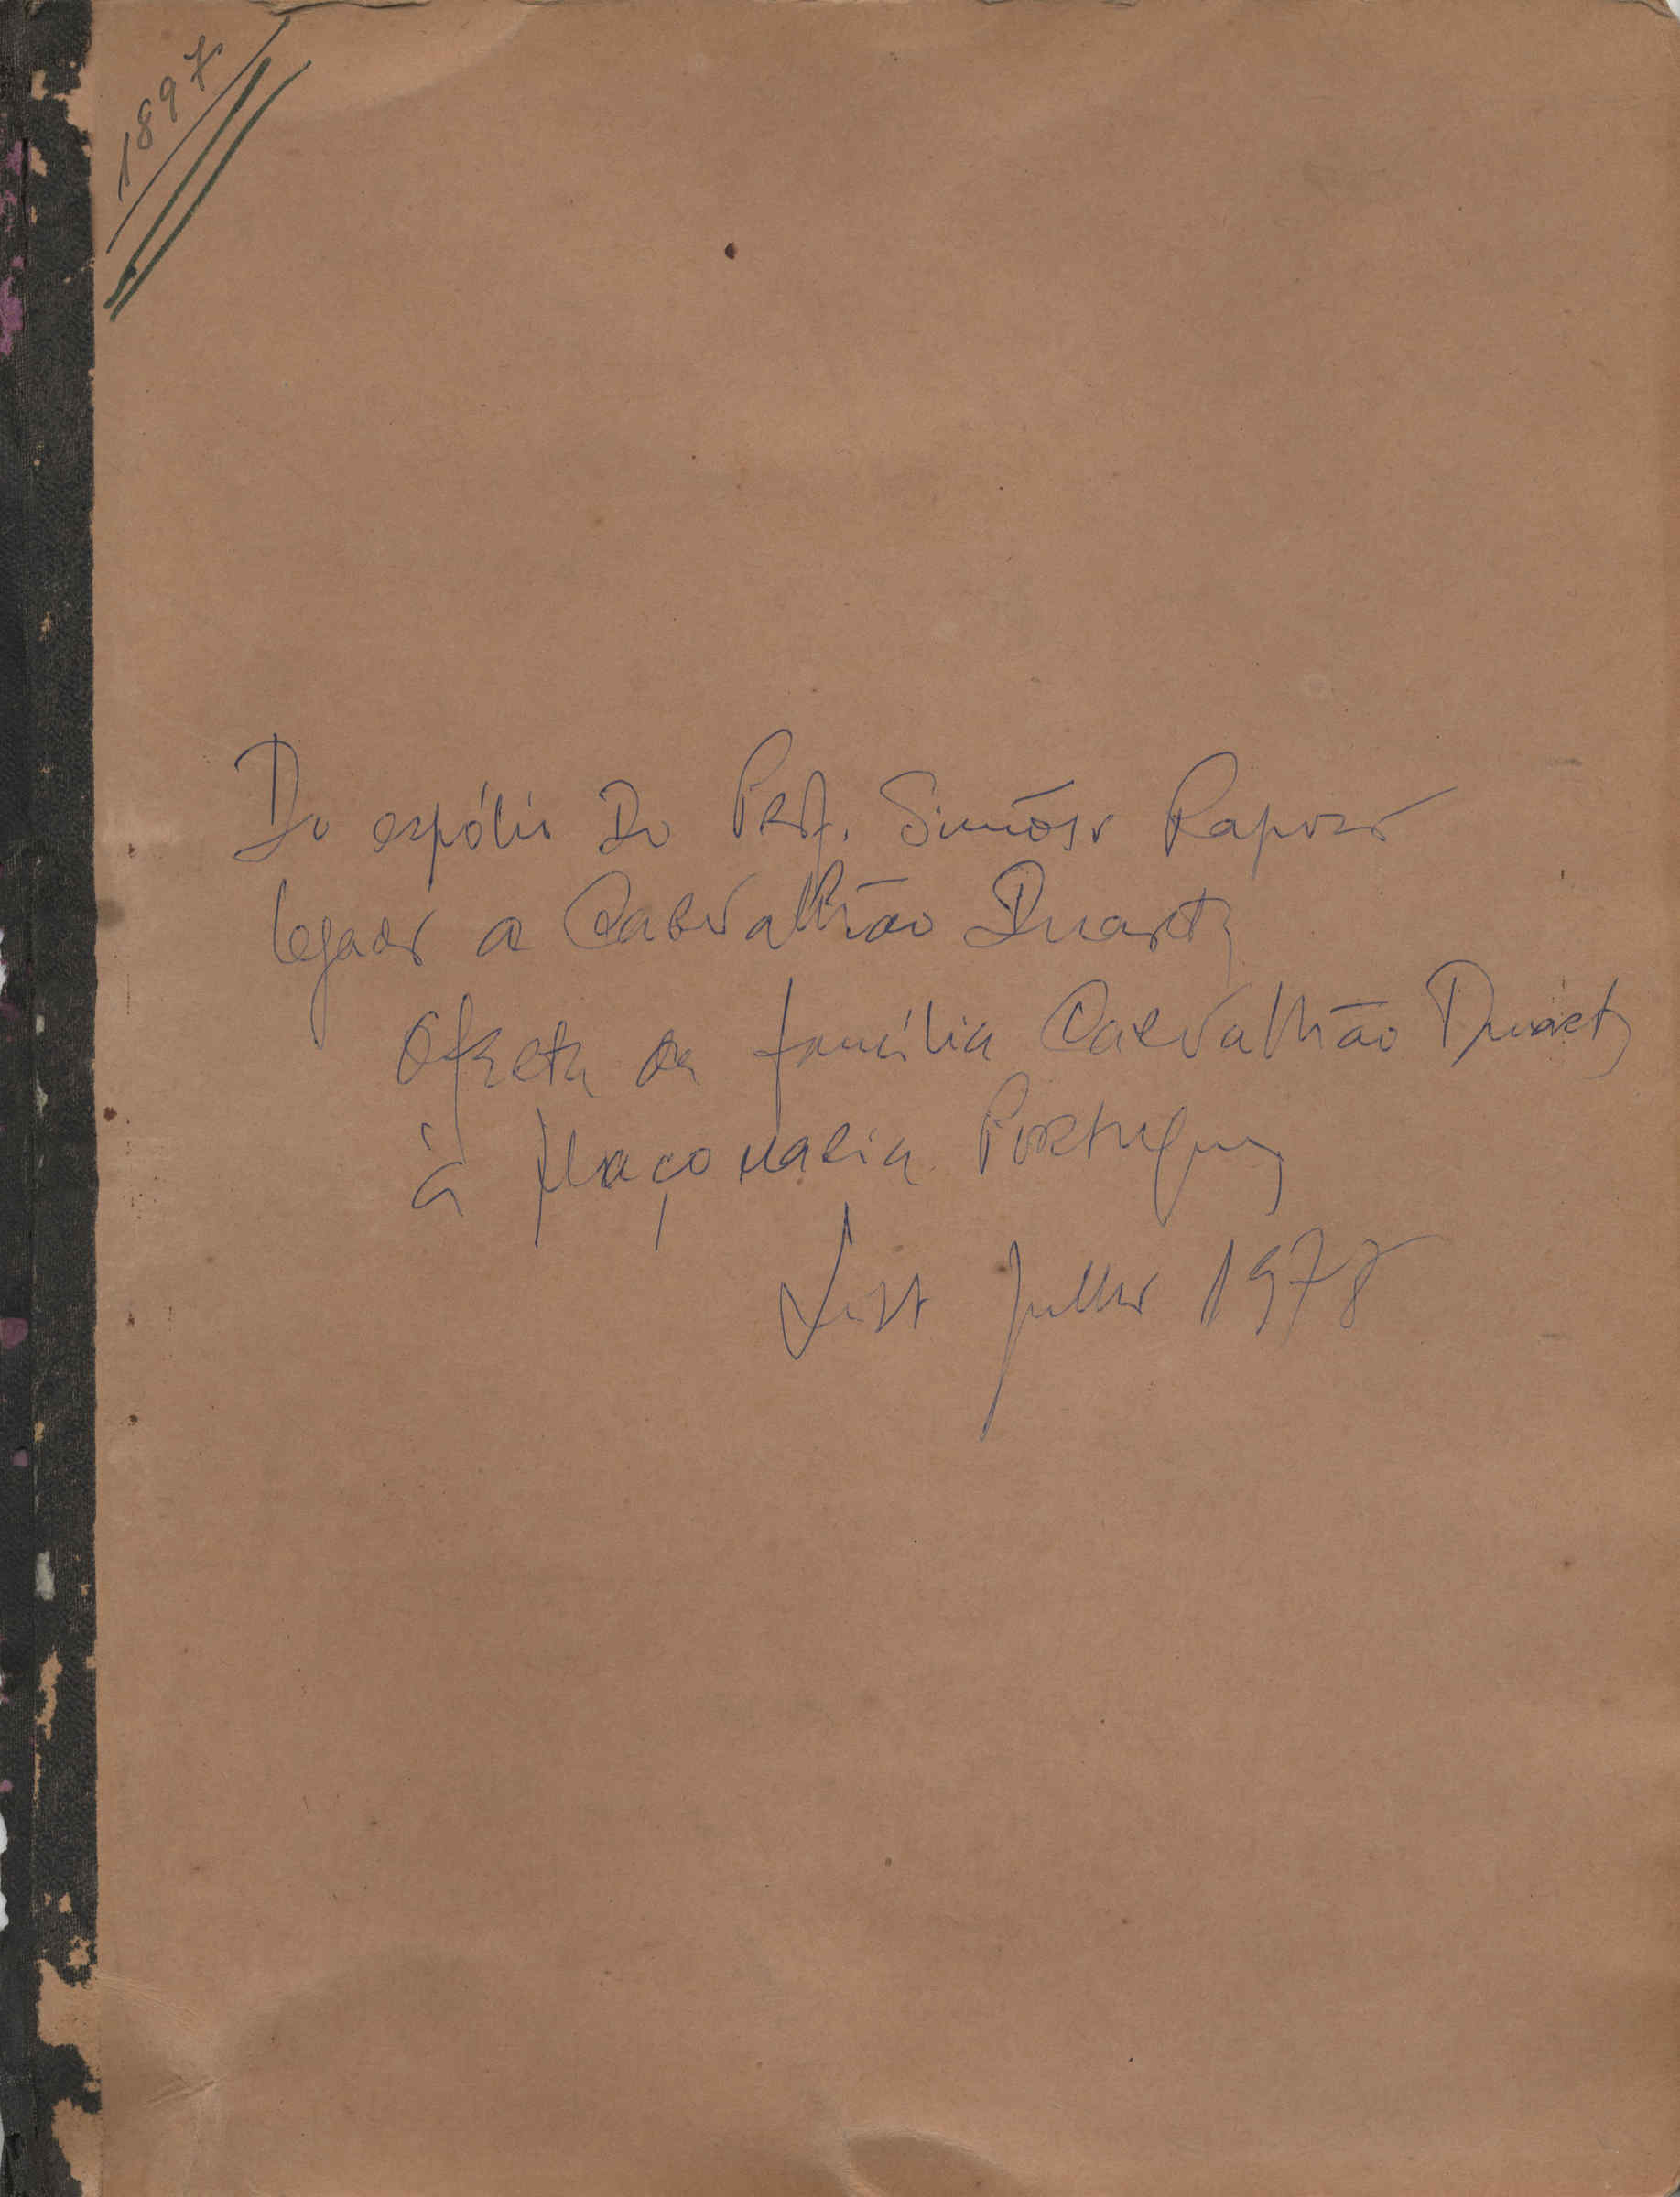 1897
Do espólio do Prof. Simões Raposo
legado a Carvalhão Duarte
Oferta da família Carvalhão Duarte
à Maçonaria Portuguesa
Julho 1978